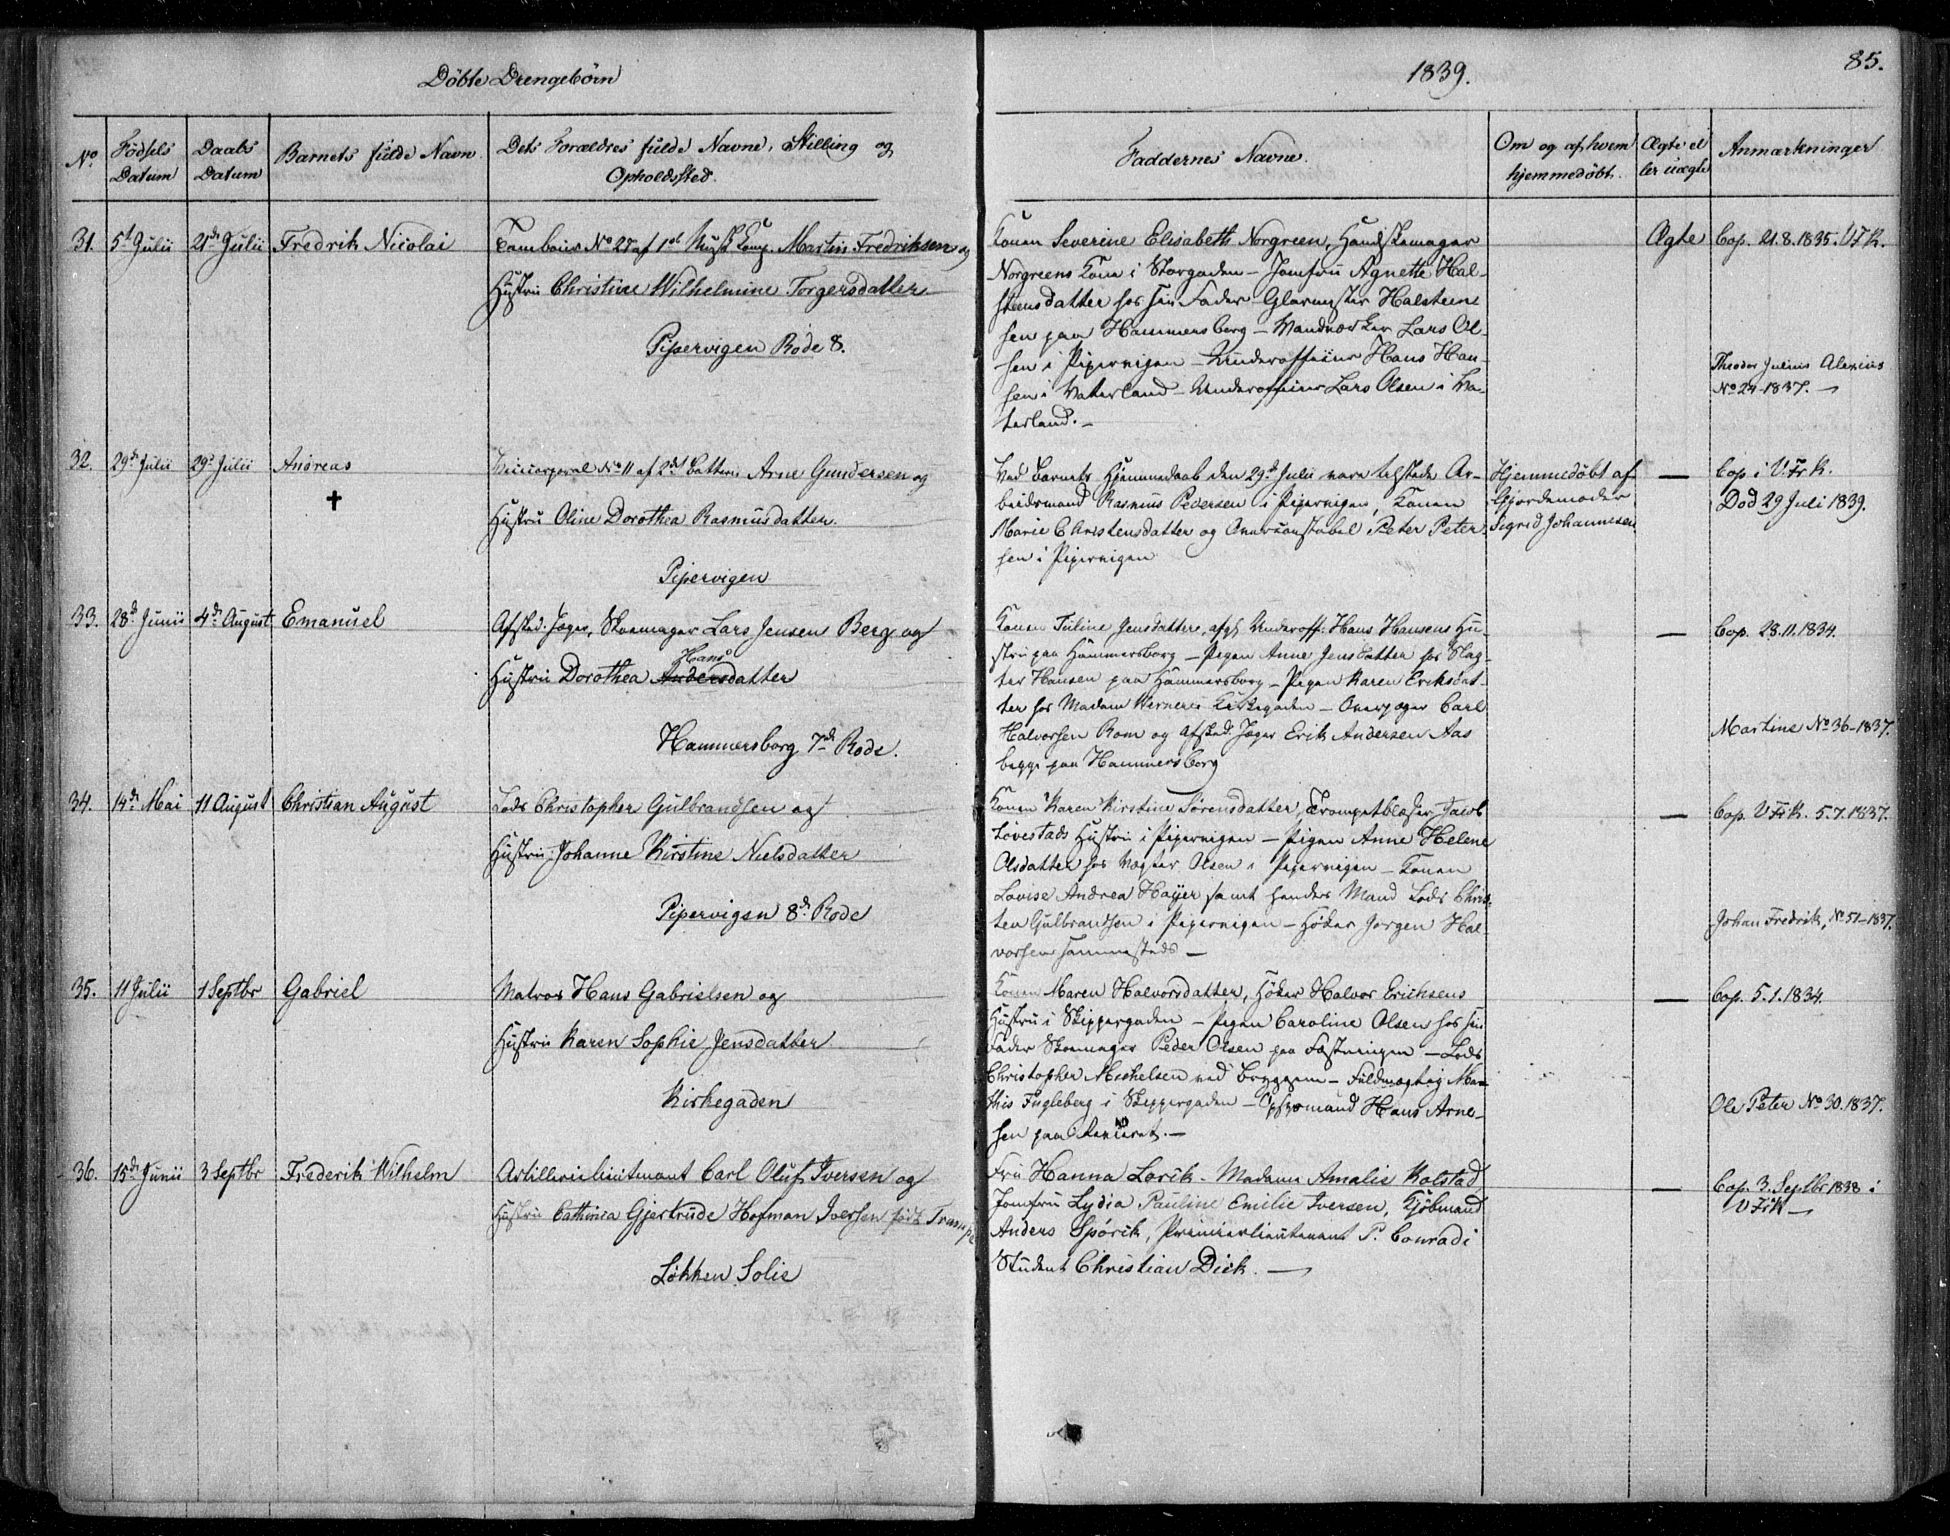 Döbte Drengebørn
1839.
85.
No. Fødsels Datum
Daabs Datum
Barnets fulde Navn
Dets Forældres fulde Navne, Stilling og
Opholdssted.
Faddernes Navne.
Om og af hvem
hjemmedøbt.
Ægte el
ler uægte
Anmærkninger
31. 5t Julii 21de Julii Fredrik Nicolai
Tambour No 25 af 1st Musk Komp. Martin Fredriksen og
Hustru Christine Wilhelmine Torgersdatter
Pipervigen Rode 8.
Konen Severine Elisabeth Norgreen, Handskemager
Norgreens Kone i Storgaden – Jomfru Agnette Hal-
steensdatter hos sin Fader Glarmester Halsteen
sen paa Hammersborg – Lars Ol-
sen i Pipervigen – Underofficier Hans Han-
sen i Vaterland – Underofficier Lars Olsen i Va-
terland. –
Ægte
Cop. 21.8.1835. V.F.K.
Theodor Julius Alexius
No 24-1837. –
32. 29de Julii 29de Julii Andreas
†
No 11 af 2det Batteri Arne Gundersen og
Hustru Oline Dorothea Rasmusdatter.
Pipervigen
Ved Barnets Hjemmedaab den 29de Julii vare tilstede Ar-
beidsmand Rasmus Pedersen i Pipervigen, Konen
Marie Christensdatter og Overconstabel Peter Peter-
sen i Pipervigen
Hjemmedøbt af
Gjordemoder
Sigrid Johannesen
—
Cop i V.Fr.K.
Död 29 Juli 1839.
33. 28de Junii 4de August Emanuel
Afsked. Jæger, Skoemager Lars Jensen Berg og
Hans
Hustru Dorothea Andersdatter
Hammersborg 7de Rode.
Konen Juline Jensdatter, afg. Underoff. Hans Hansens Hu-
stru paa Hammersborg – Pigen Anne Jensdatter hos Slag-
ter Hansen paa Hammersborg – Pigen Karen Eriksdat-
ter hos Madam Werner i Kirkegaden – Overjæger Carl
Halvorsen Rom og Afsked. Jæger Erik Andersen Aas
begge paa Hammersborg
—
Cop. 28.11.1834.
Martine No 36-1837.
34. 14de Mai 11 August Christian August
Lods Christopher Gulbrandsen og
Hustru Johanne Kirstine Nielsdatter
Pipervigen 8de Rode
Konen Karen Kirstine Sörensdatter, Trompetblæser Jacob
Lövestads Hustru i Pipervigen – Pigen Anne Helene
Olsdatter hos Olsen i Pipervigen – Konen
Lovise Andrea Høyer samt hendes Mand Lods Chris-
ten Gulbrandsen i Pipervigen – Höker Jørgen Hal-
vorsen sammesteds –
—
Cop. V.Fr.K. 5.7.1837.
Johan Fredrik, No 51-1837.
35. 11 Julii 1 Septbr Gabriel
Matros Hans Gabrielsen og
Hustru Karen Sophie Jensdatter
Kirkegaden
Konen Maren Halvorsdatter, Höker Halvor Erichsens
Hustru i Skippergaden – Pigen Caroline Olsen hos sin
Fader Skomager Peder Olsen paa Fæstningen – Lods
Christopher Michelsen ved Bryggen – Fuldmægtig Ma-
this Fugleberg i Skippergaden – Opsynsmand Hans Arne-
sen paa –
—
Cop. 5.1.1834.
Ole Peter No 30.1837.
36. 15de Junii 3 Septbr Frederik Wilhelm
Artillerielieutenant Carl Oluf Iversen og
Hustru Cathinca Gjertrude Hofman Iversen født Trampe
Løkken Solie
Fru Hanna Lorck – Madame Amalie Kolstad
Jomfru Lydia Pauline Emilie Iversen, Kjöbmand
Anders Spörck, Premierlieutenant P. Conradi
Student Christian Dick. —
—
Cop. 3. Septbr 1838 i
V.Fr.K –